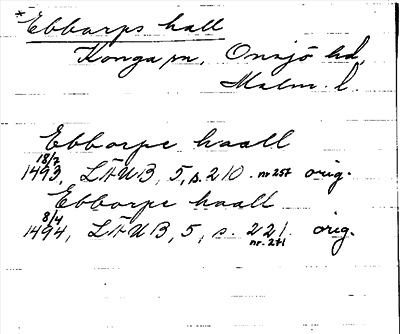 *Ebbarps hall
Konga sn, Onsjö hd,
Malm. l.
Ebborpe haall
18/7
1493, LÄUB, 5, s. 210. nr 257 orig.
Ebbarpe haall
8/4
1494, LÄUB, 5, s. 221. orig.
nr. 271